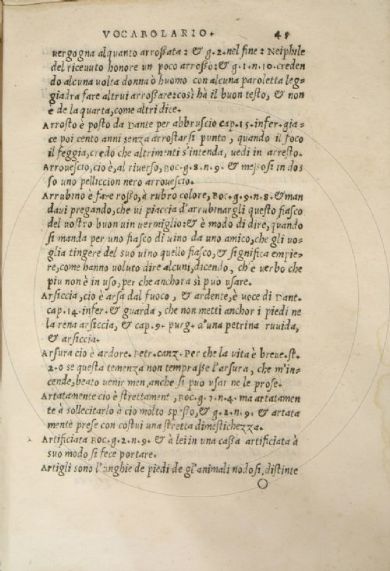 VOCABOLARIO. 49
uergogna alquanto arroßata: & g. 2. nel fine: Neiphile
del riceuuto honore un poco arroßo: & g. 1. n. 10. creden
do alcuna uolta donna o huomo con alcuna paroletta leg-
giadra fare altrui arroßare: così hà il buon testo, & non
è de la quarta, come altri dice.
Arrosto è posto da Dante per abbruscio cap. 15. infer. gia-
ce poi cento anni senza arrostarsi punto, quando il foco
il feggia, credo che altrimenti s'intenda, uedi in arresto.
Arrouescio, cio è, al riuerso, Boc. g. 8. n. 9. & meßosi in dos
so uno pelliccion nero arrouescio.
Arrubino è fare roßo, à rubro colore, Boc. g. 5. n. 8. & man
daui pregando, che ui piaccia d'arrubinargli questo fiasco
del uostro buon uin uermiglio: & è modo di dire, quando
si manda per uno fiasco di uino da uno amico, che gli uo-
glia tingere del suo uino quello fiasco, & significa empie-
re, come hanno uoluto dire alcuni, dicendo, ch'è uerbo che
piu non è in uso, per che anchora si può usare.
Arsiccia, cio è arsa dal fuoco, & ardente, è uoce di Dant.
cap. 14. infer. & guarda, che non metti anchor i piedi ne
la rena arsiccia, & cap. 9. purg. d'una petrina ruuida,
& arsiccia.
Arsura cio è ardore. Petr. canz. Per che la uita è breue. st.
2. o se questa temenza non tempraße l'arsura, che m'in-
cende, beato uenir men, anche si può usar ne le prose.
Artatamente cio è strettament, Boc. g. 7. n. 4. ma artatamen
te à sollecitarlo à cio molto speßo, & g. 2. n. 9. & artata
mente prese con costui una stretta dimestichezza.
Artificiata Boc. g. 2. n. 9. & à lei in una caßa artificiata à
suo modo si fece portare.
Artigli sono l'unghie de piedi de gl'animali nodosi, distinte